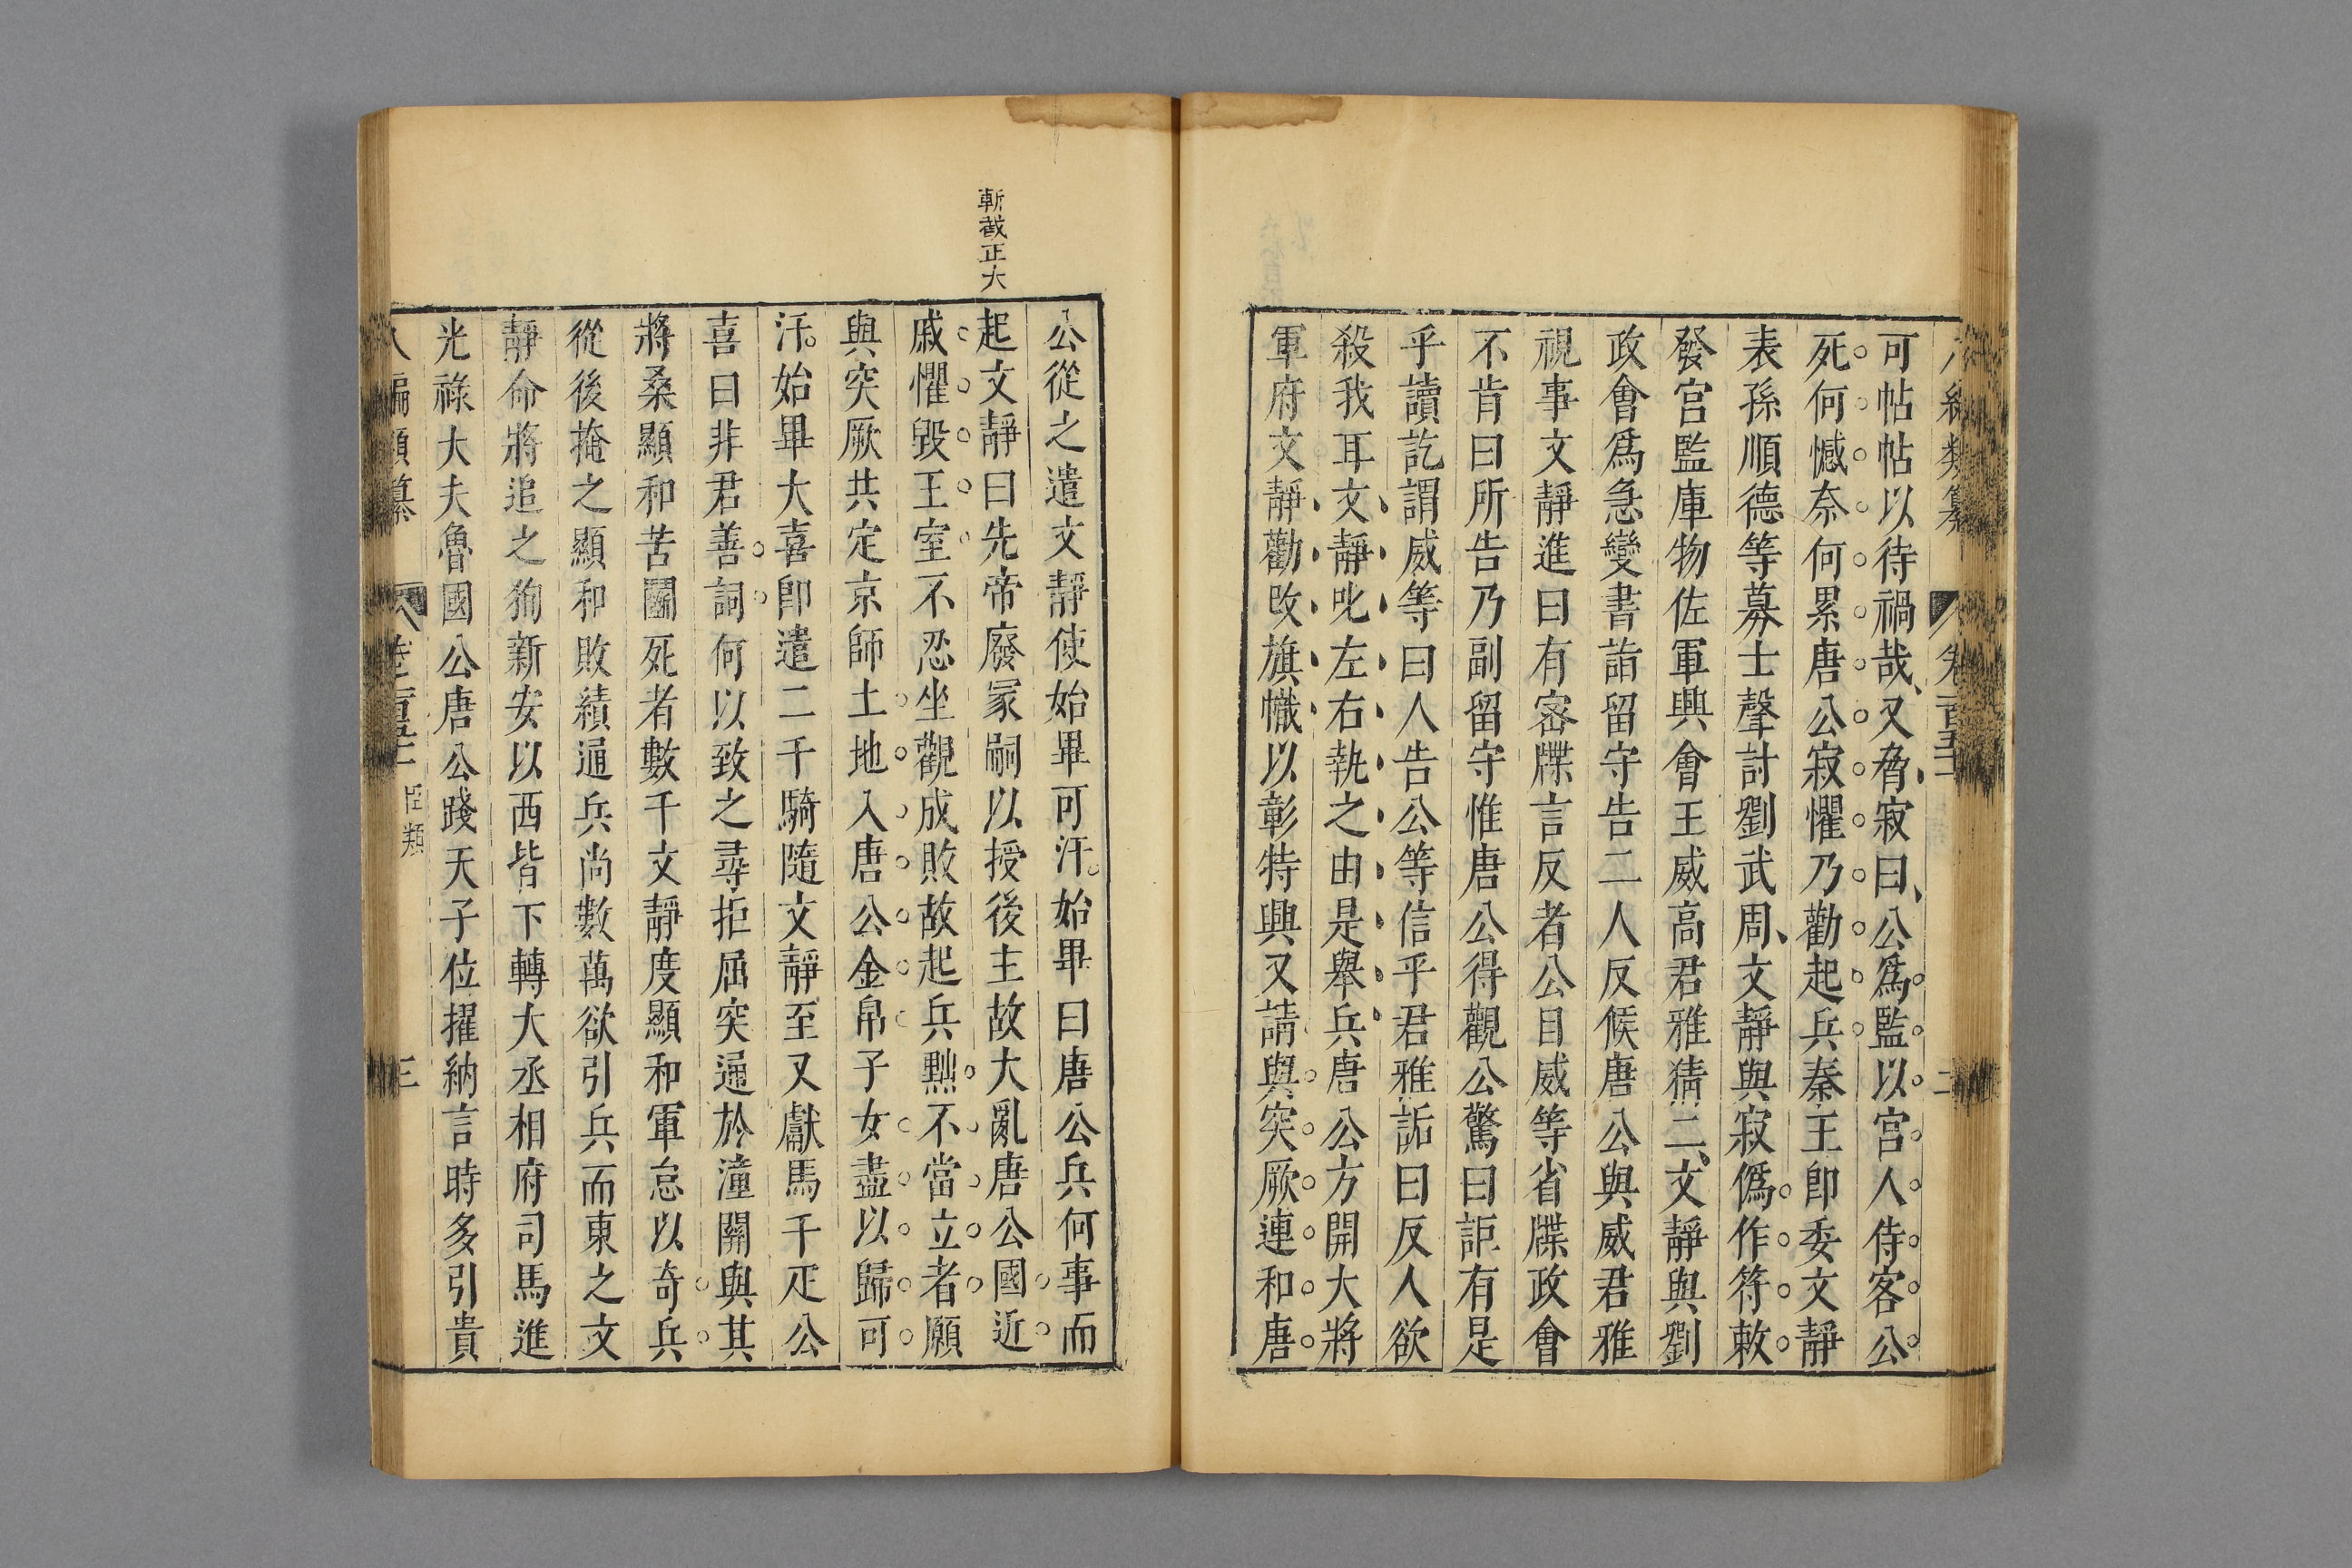 可帖帖以待禍哉又脅寂曰公爲監以宮人侍客公
死何憾奈何累唐公寂懼乃勸起兵秦王卽委文靜
表孫順德等募士聲討劉武周文靜與寂僞作符敕
發宮監庫物佐軍興會王威高君雅猜二文靜與劉
政會爲急變書詣留守告二人反候唐公與威君雅
視事文靜進曰有密牒言反者公目威等省牒政會
不肯曰所告乃副留守惟唐公得觀公驚曰詎有是
乎讀訖謂威等曰人告公等信乎君雅詬曰反人欲
殺我耳文靜叱左右執之由是舉兵唐公方開大將
軍府文靜勸改旗幟以彰特興又請與突厥連和唐
斬截正大
公從之遣文靜使始畢可汗始畢曰唐公兵何事而
起文靜曰先帝廢冢嗣以授後主故大亂唐公國近
戚懼毀王室不忍坐觀成敗故起兵黜不當立者願
與突厥共定京師土地入唐公金帛子女盡以歸可
汗始畢大喜卽遣二千騎隨文靜至又獻馬千疋公
喜曰非君善詞何以致之尋拒屈突通於潼關與其
將桑顯和苦鬭死者數千文靜度顯和軍怠以奇兵
從後掩之顯和敗績通兵尚數萬欲引兵而東之文
靜命將追之狥新安以西皆下轉大丞相府司馬進
光祿大夫魯國公唐公踐天子位擢納言時多引貴
臣類
三